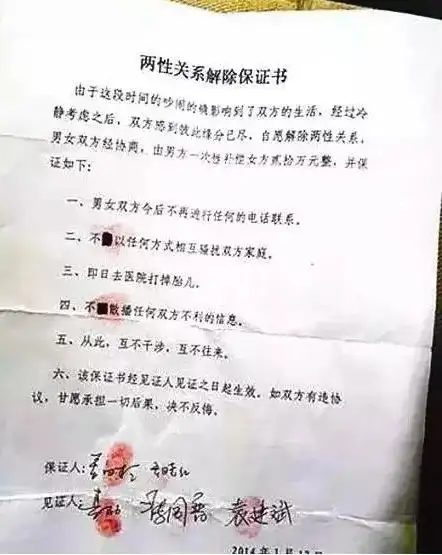 两性关系解除保证书
由于这段时间的吵闹的确影响到了双方的生活，经过冷
静考虑之后，双方感到彼此缘分已尽，自愿解除两性关系，
男女双方经协商，由男方一次性补偿女方贰拾万元整，并保
证如下：
一、男女双方今后不再进行任何的电话联系。
二、不以任何方式相互骚扰双方家庭。
三、即日去医院打掉胎儿。
四、不散播任何双方不利的信息。
五、从此，互不干涉，互不往来。
六、该保证书经见证人见证之日起生效，如双方有违协
议，甘愿承担一切后果，决不反悔。
保证人：
见证人： 袁建斌
2014年1月